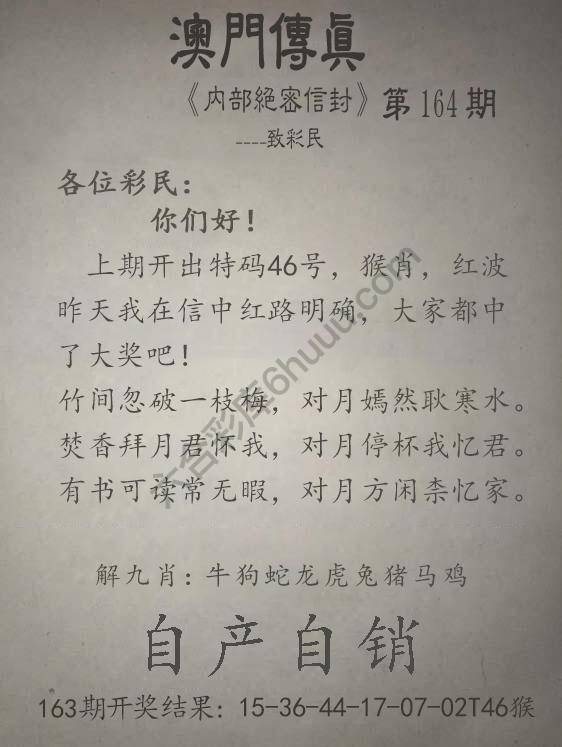 澳門傳真
《内部絕密信封》第164期
----致彩民
各位彩民：
你们好！
上期开出特码46号，猴肖，红波
昨天我在信中红路明确，大家都中
了大奖吧！
竹间忽破一枝梅，对月嫣然耿寒水。
焚香拜月君怀我，对月停杯我忆君。
有书可读常无暇，对月方闲柰忆家。
解九肖：牛狗蛇龙虎兔猪马鸡
自产自销
163期开奖结果：15-36-44-17-07-02T46猴
六合彩库6huuu.com